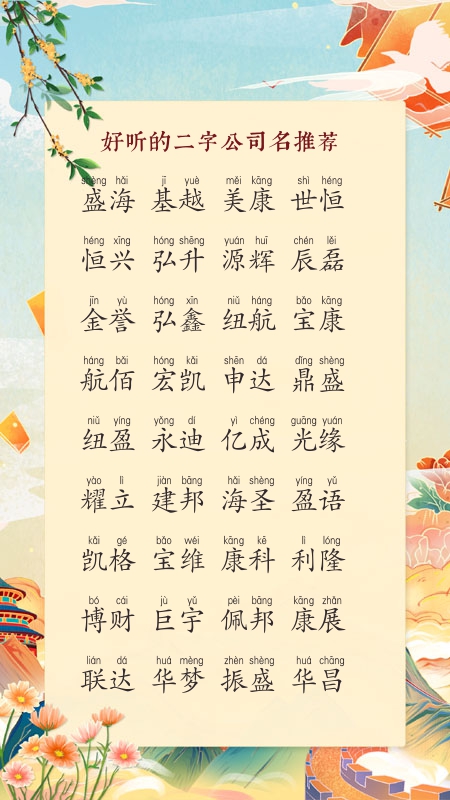 好听的二字公司名推荐
shèng hǎi jī yuè měi kāng shì héng
盛海 基越 美康 世恒
héng xīng hóng shēng yuán huī chén lěi
恒兴 弘升 源辉 辰磊
jīn yù hóng xīn niǔ háng bǎo kāng
金誉 弘鑫 纽航 宝康
háng bǎi hóng kǎi shēn dá dǐng shèng
航佰 宏凯 申达 鼎盛
niǔ yíng yǒng dí yì chéng guāng yuán
纽盈 永迪 亿成 光缘
yào lì jiàn bāng hǎi shèng yíng yǔ
耀立 建邦 海圣 盈语
kǎi gé bǎo wéi kāng kē lì lóng
凯格 宝维 康科 利隆
bó cái jù yǔ pèi bāng kāng zhǎn
博财 巨宇 佩邦 康展
lián dá huá mèng zhèn shèng huá chāng
联达 华梦 振盛 华昌